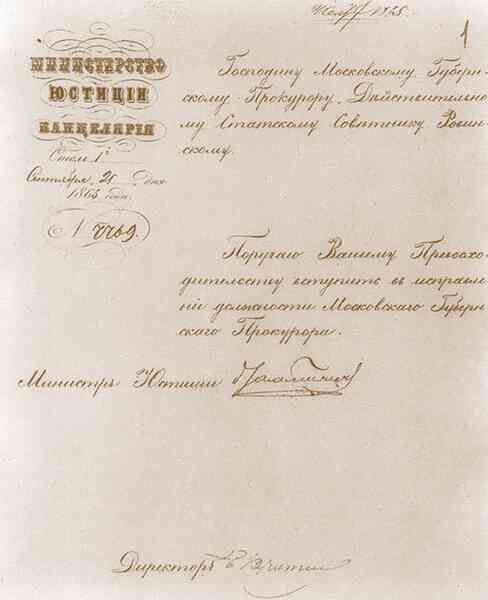 1
МИНИСТЕРСТВО
ЮСТИЦІИ
КАНЦЕЛЯРІЯ
Столъ 1й
Сентября 21 дня
1865 года.
N 7769.
Господину Московскому Губерн-
скому Прокурору, Действительно-
му Статскому Советнику Ровин-
скому.
Поручаю Вашему Превосхо-
дительству вступить въ исправле-
ніе должности Московскаго Губерн-
скаго Прокурора.
Министръ Юстиціи
Директоръ